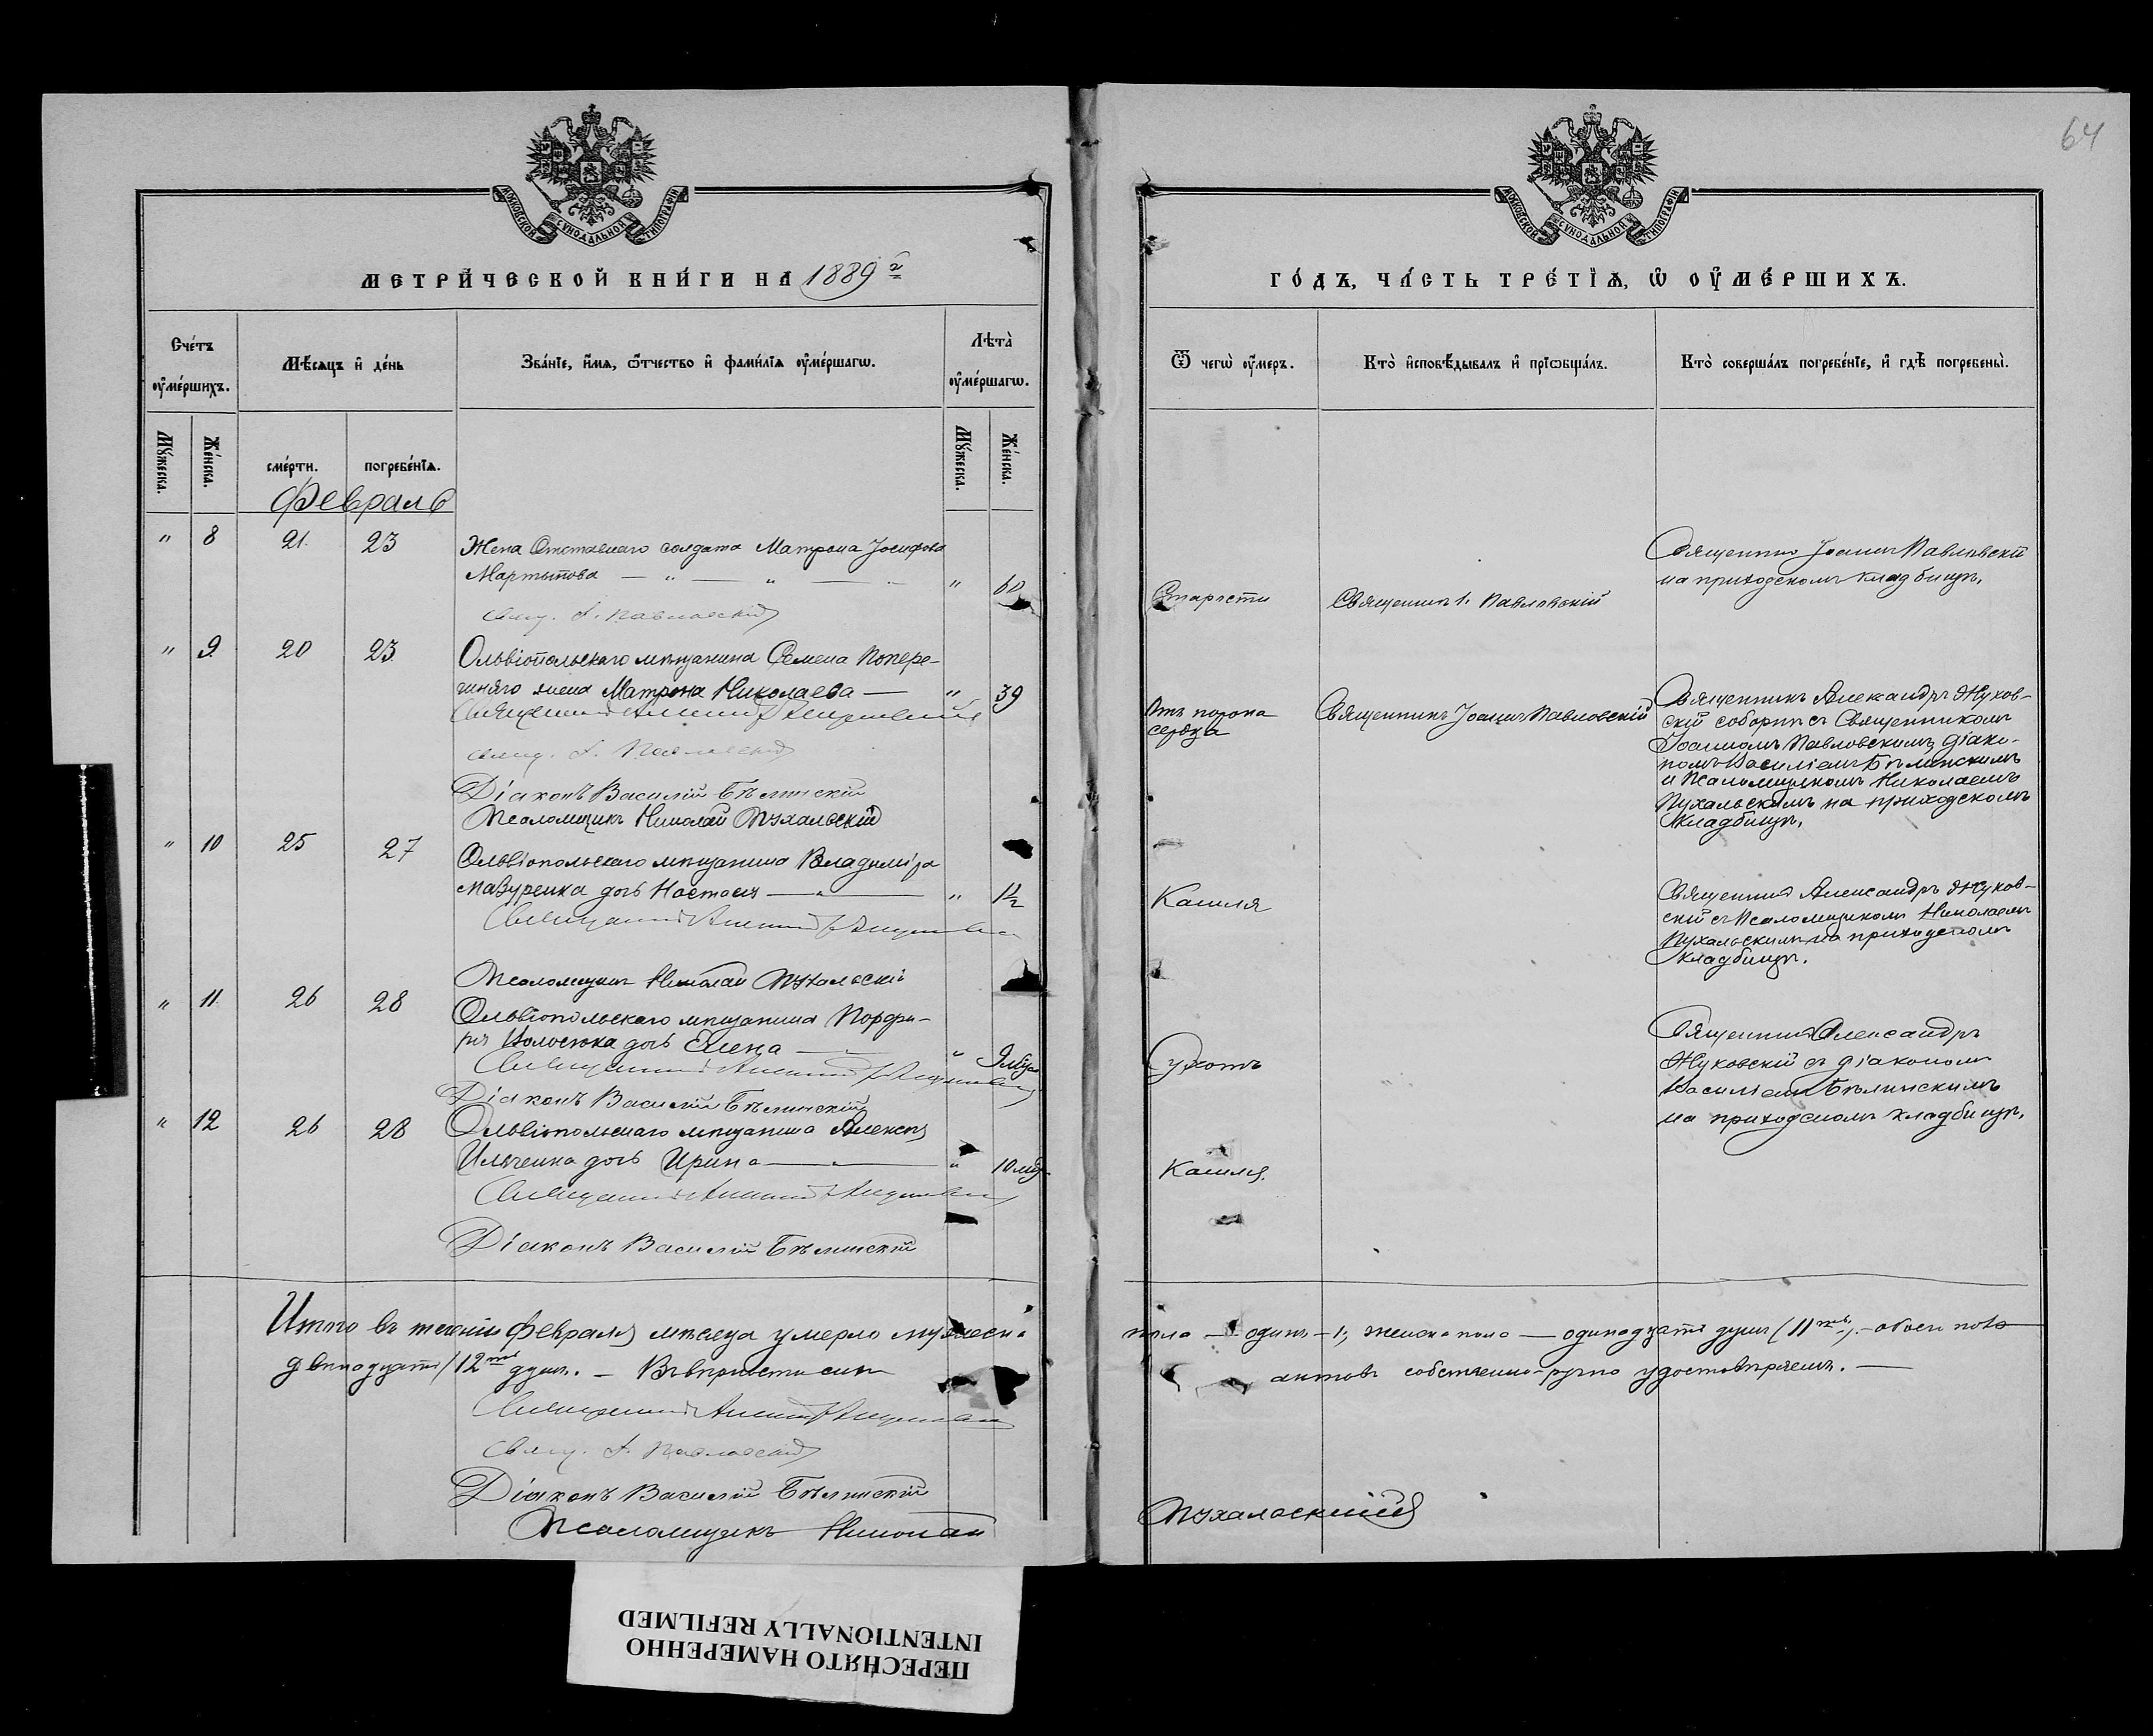 64
МОСКОВСКОЙ СУНОДАЛЬНОЙ ТИПОГРАФІИ
МЕТРИЧЕСКОЙ КНИГИ НА 1889 г.
Счетъ оумершихъ.
Мѣсяцъ и день
Званіе, имя, отчество и фамилія оумершагѡ.
Лѣта оумершагѡ.
Мужеска.
Женска.
смерти.
погребенія.
Мужеска.
Женска.
Февраль
" 8 21. 23 Жена Отставнаго солдата Матрона Іосифова
Мартынова — " — " — " 60
Свящ. І. Павловскій
" 9. 20 23. Ольвіопольскаго мѣщанина Семена Попере-
чняго жена Матрона Николаева — " 39
Священникъ Александръ Жуковскій
Свящ. І. Павловскій
Діаконъ Василій Бѣлинскій
Псаломщикъ Николай Пухальскій
" 10 25 27 Ольвіопольскаго мѣщанина Владиміра
Мазуренка дочь Настасія — " — " 1½
Священникъ Александръ Жуковскій
Псаломщикъ Николай Пухальскій
" 11. 26 28 Ольвіопольскаго мѣщанина Порфи-
рія Волосюка дочь Елена — "
Священникъ Александръ Жуковскій
Діаконъ Василій Бѣлинскій
" 12 26 28 Ольвіопольскаго мѣщанина Алексѣя
Ильченка дочь Ирина — " 10 мѣс.
Священникъ Александръ Жуковскій
Діаконъ Василій Бѣлинскій
Итого въ теченіи Февраля мѣсяца умерло мужеска
двѣнадцать (12ть) душъ. — Въ вѣрности сихъ
Священникъ Александръ Жуковскій
Свящ. І. Павловскій
Діаконъ Василій Бѣлинскій
Псаломщикъ Николай
МОСКОВСКОЙ СУНОДАЛЬНОЙ ТИПОГРАФІИ
ГОДЪ, ЧАСТЬ ТРЕТІЯ, Ѡ ОУМЕРШИХЪ.
Ѿ чегѡ оумеръ.
Кто исповѣдывалъ и пріѡбщалъ.
Кто совершалъ погребеніе, и гдѣ погребены.
Старости
Священникъ І. Павловскій
Священникъ Іоаннъ Павловскій
на приходскомъ кладбищѣ.
Отъ порока
сердца
Священникъ Іоаннъ Павловскій
Священникъ Александръ Жуков-
скій соборнѣ съ Священникомъ
Іоанномъ Павловскимъ, діако-
номъ Василіемъ Бѣлинскимъ
и Псаломщикомъ Николаемъ
Пухальскимъ на приходскомъ
кладбищѣ.
Кашля
Священникъ Александръ Жуков-
скій съ Псаломщикомъ Николаемъ
Пухальскимъ на приходскомъ
кладбищѣ.
Сухотъ
Священникъ Александръ
Жуковскій съ діакономъ
Василіемъ Бѣлинскимъ
на приходскомъ кладбищѣ.
Кашля.
пола — одинъ — 1; женска пола — одинадцать душъ (11ть), — обоего пола
актовъ собственно-ручно удостовѣряемъ. —
Пухальскій
ПЕРЕСНЯТО НАМЕРЕННО
INTENTIONALLY REFILMED